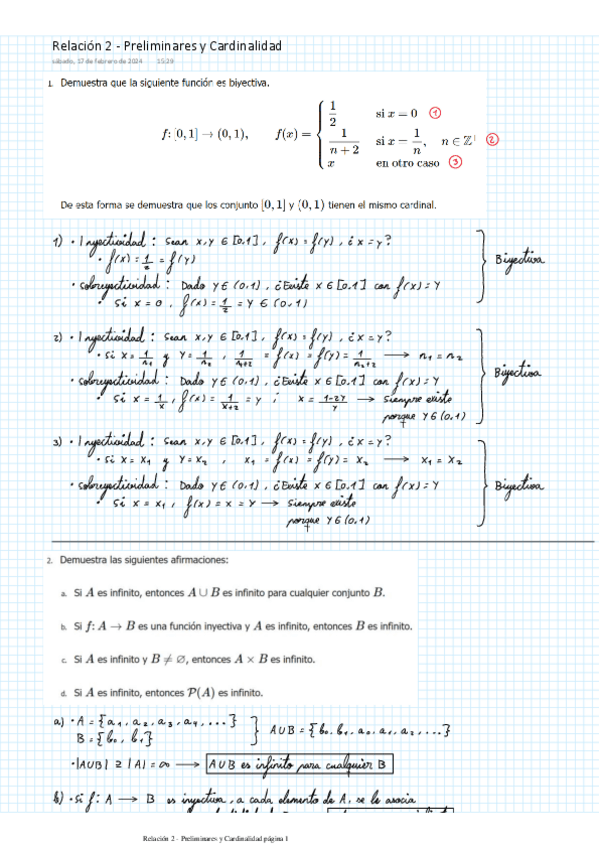 Relación 2 - Preliminares y Cardinalidad
sábado, 17 de febrero de 2024 15:29
1. Demuestra que la siguiente función es biyectiva.
f: [0, 1] → (0, 1), f(x) = { 1/2 si x = 0 ①
1/(n + 2) si x = 1/n, n ∈ ℤ ②
x en otro caso ③
De esta forma se demuestra que los conjunto [0, 1] y (0, 1) tienen el mismo cardinal.
1) · Inyectividad : Sean x, y ∈ [0,1], f(x) = f(y), ¿x = y?
· f(x) = 1/2 = f(y)
· Sobreyectividad : Dado y ∈ (0,1), ¿Existe x ∈ [0,1] con f(x) = y
· Si x = 0, f(x) = 1/2 = y ∈ (0,1)
Biyectiva
2) · Inyectividad : Sean x, y ∈ [0,1], f(x) = f(y), ¿x = y?
· Si x = 1/n₁ y y = 1/n₂, 1/n₁+2 = f(x) = f(y) = 1/n₂+2 → n₁ = n₂
· Sobreyectividad : Dado y ∈ (0,1), ¿Existe x ∈ [0,1] con f(x) = y
· Si x = 1/x, f(x) = 1/x+2 = y ; x = 1-2y/y → siempre existe
porque y ∈ (0,1)
Biyectiva
3) · Inyectividad : Sean x, y ∈ [0,1], f(x) = f(y), ¿x = y?
· Si x = x₁ y y = x₂, x₁ = f(x) = f(y) = x₂ → x₁ = x₂
· Sobreyectividad : Dado y ∈ (0,1), ¿Existe x ∈ [0,1] con f(x) = y
· Si x = x₁, f(x) = x = y → siempre existe
porque y ∈ (0,1)
Biyectiva
2. Demuestra las siguientes afirmaciones:
a. Si A es infinito, entonces A ∪ B es infinito para cualquier conjunto B.
b. Si f: A → B es una función inyectiva y A es infinito, entonces B es infinito.
c. Si A es infinito y B ≠ ∅, entonces A × B es infinito.
d. Si A es infinito, entonces P(A) es infinito.
a) · A = {a₁, a₂, a₃, a₄, ...}
B = {b₀, b₁}
A∪B = {b₀, b₁, a₀, a₁, a₂, ...}
· |A∪B| ≥ |A| = ∞ → A∪B es infinito para cualquier B
b) · Si f: A → B es inyectiva, a cada elemento de A, se le asocia
Relación 2 - Preliminares y Cardinalidad página 1